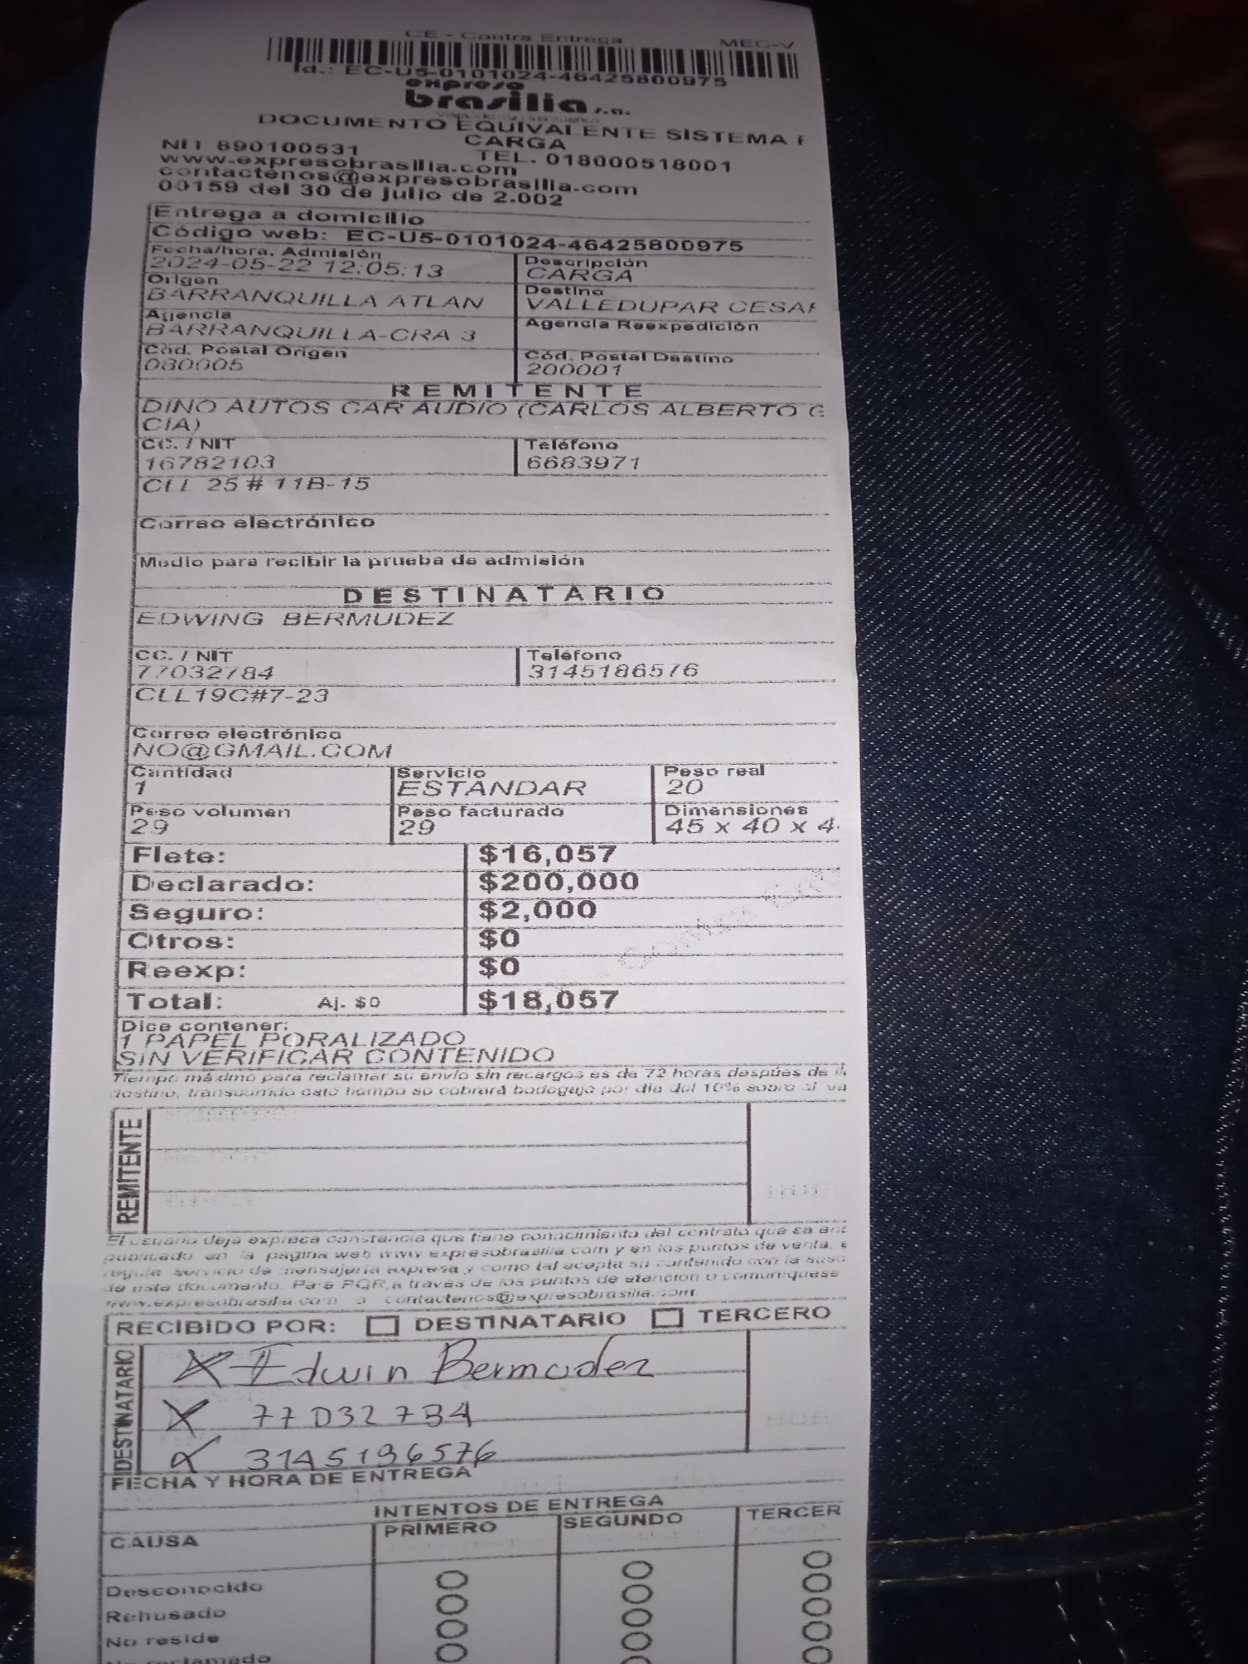 CE - Contra Entrega MEC-V
Id.: EC-U5-0101024-46425800975
expreso
brasilia s.a.
DOCUMENTO EQUIVALENTE SISTEMA
CARGA
NIT 890100531 TEL. 018000518001
www.expresobrasilia.com
contactenos@expresobrasilia.com
00159 del 30 de julio de 2.002
Entrega a domicilio
Código web: EC-U5-0101024-46425800975
Fecha/hora. Admisión Descripción
2024-05-22 12:05:13 CARGA
Origen Destino
BARRANQUILLA ATLAN VALLEDUPAR CESAR
Agencia Agencia Reexpedición
BARRANQUILLA-CRA 3
Cód. Postal Origen Cód. Postal Destino
080005 200001
REMITENTE
DINO AUTOS CAR AUDIO (CARLOS ALBERTO G
CIA)
CC. / NIT Teléfono
16782103 6683971
CLL 25 # 11B-15
Correo electrónico
Medio para recibir la prueba de admisión
DESTINATARIO
EDWING BERMUDEZ
CC. / NIT Teléfono
77032784 3145186576
CLL19C#7-23
Correo electrónico
NO@GMAIL.COM
Cantidad Servicio Peso real
1 ESTANDAR 20
Peso volumen Peso facturado Dimensiones
29 29 45 x 40 x 4
Flete: $16,057
Declarado: $200,000
Seguro: $2,000
Otros: $0
Reexp: $0
Total: Aj. $0 $18,057
Dice contener:
1 PAPEL PORALIZADO
SIN VERIFICAR CONTENIDO
Tiempo máximo para reclamar su envío sin recargos es de 72 horas después de
destino, transcurrido este tiempo se cobrará bodegaje por día del 10% sobre el va
REMITENTE
El usuario deja expresa constancia que tiene conocimiento del contrato que se
publicado en la página web www.expresobrasilia.com y en los puntos de venta,
regula servicio de mensajería expresa y como tal acepta su contenido con la
de este documento. Para PQR a través de los puntos de atención o comuníquese
www.expresobrasilia.com contactenos@expresobrasilia.com
RECIBIDO POR: DESTINATARIO TERCERO
DESTINATARIO
X Edwin Bermudez
X 77032784
X 3145186576
FECHA Y HORA DE ENTREGA
INTENTOS DE ENTREGA
CAUSA PRIMERO SEGUNDO TERCER
Desconocido
Rehusado
No reside
No reclamado